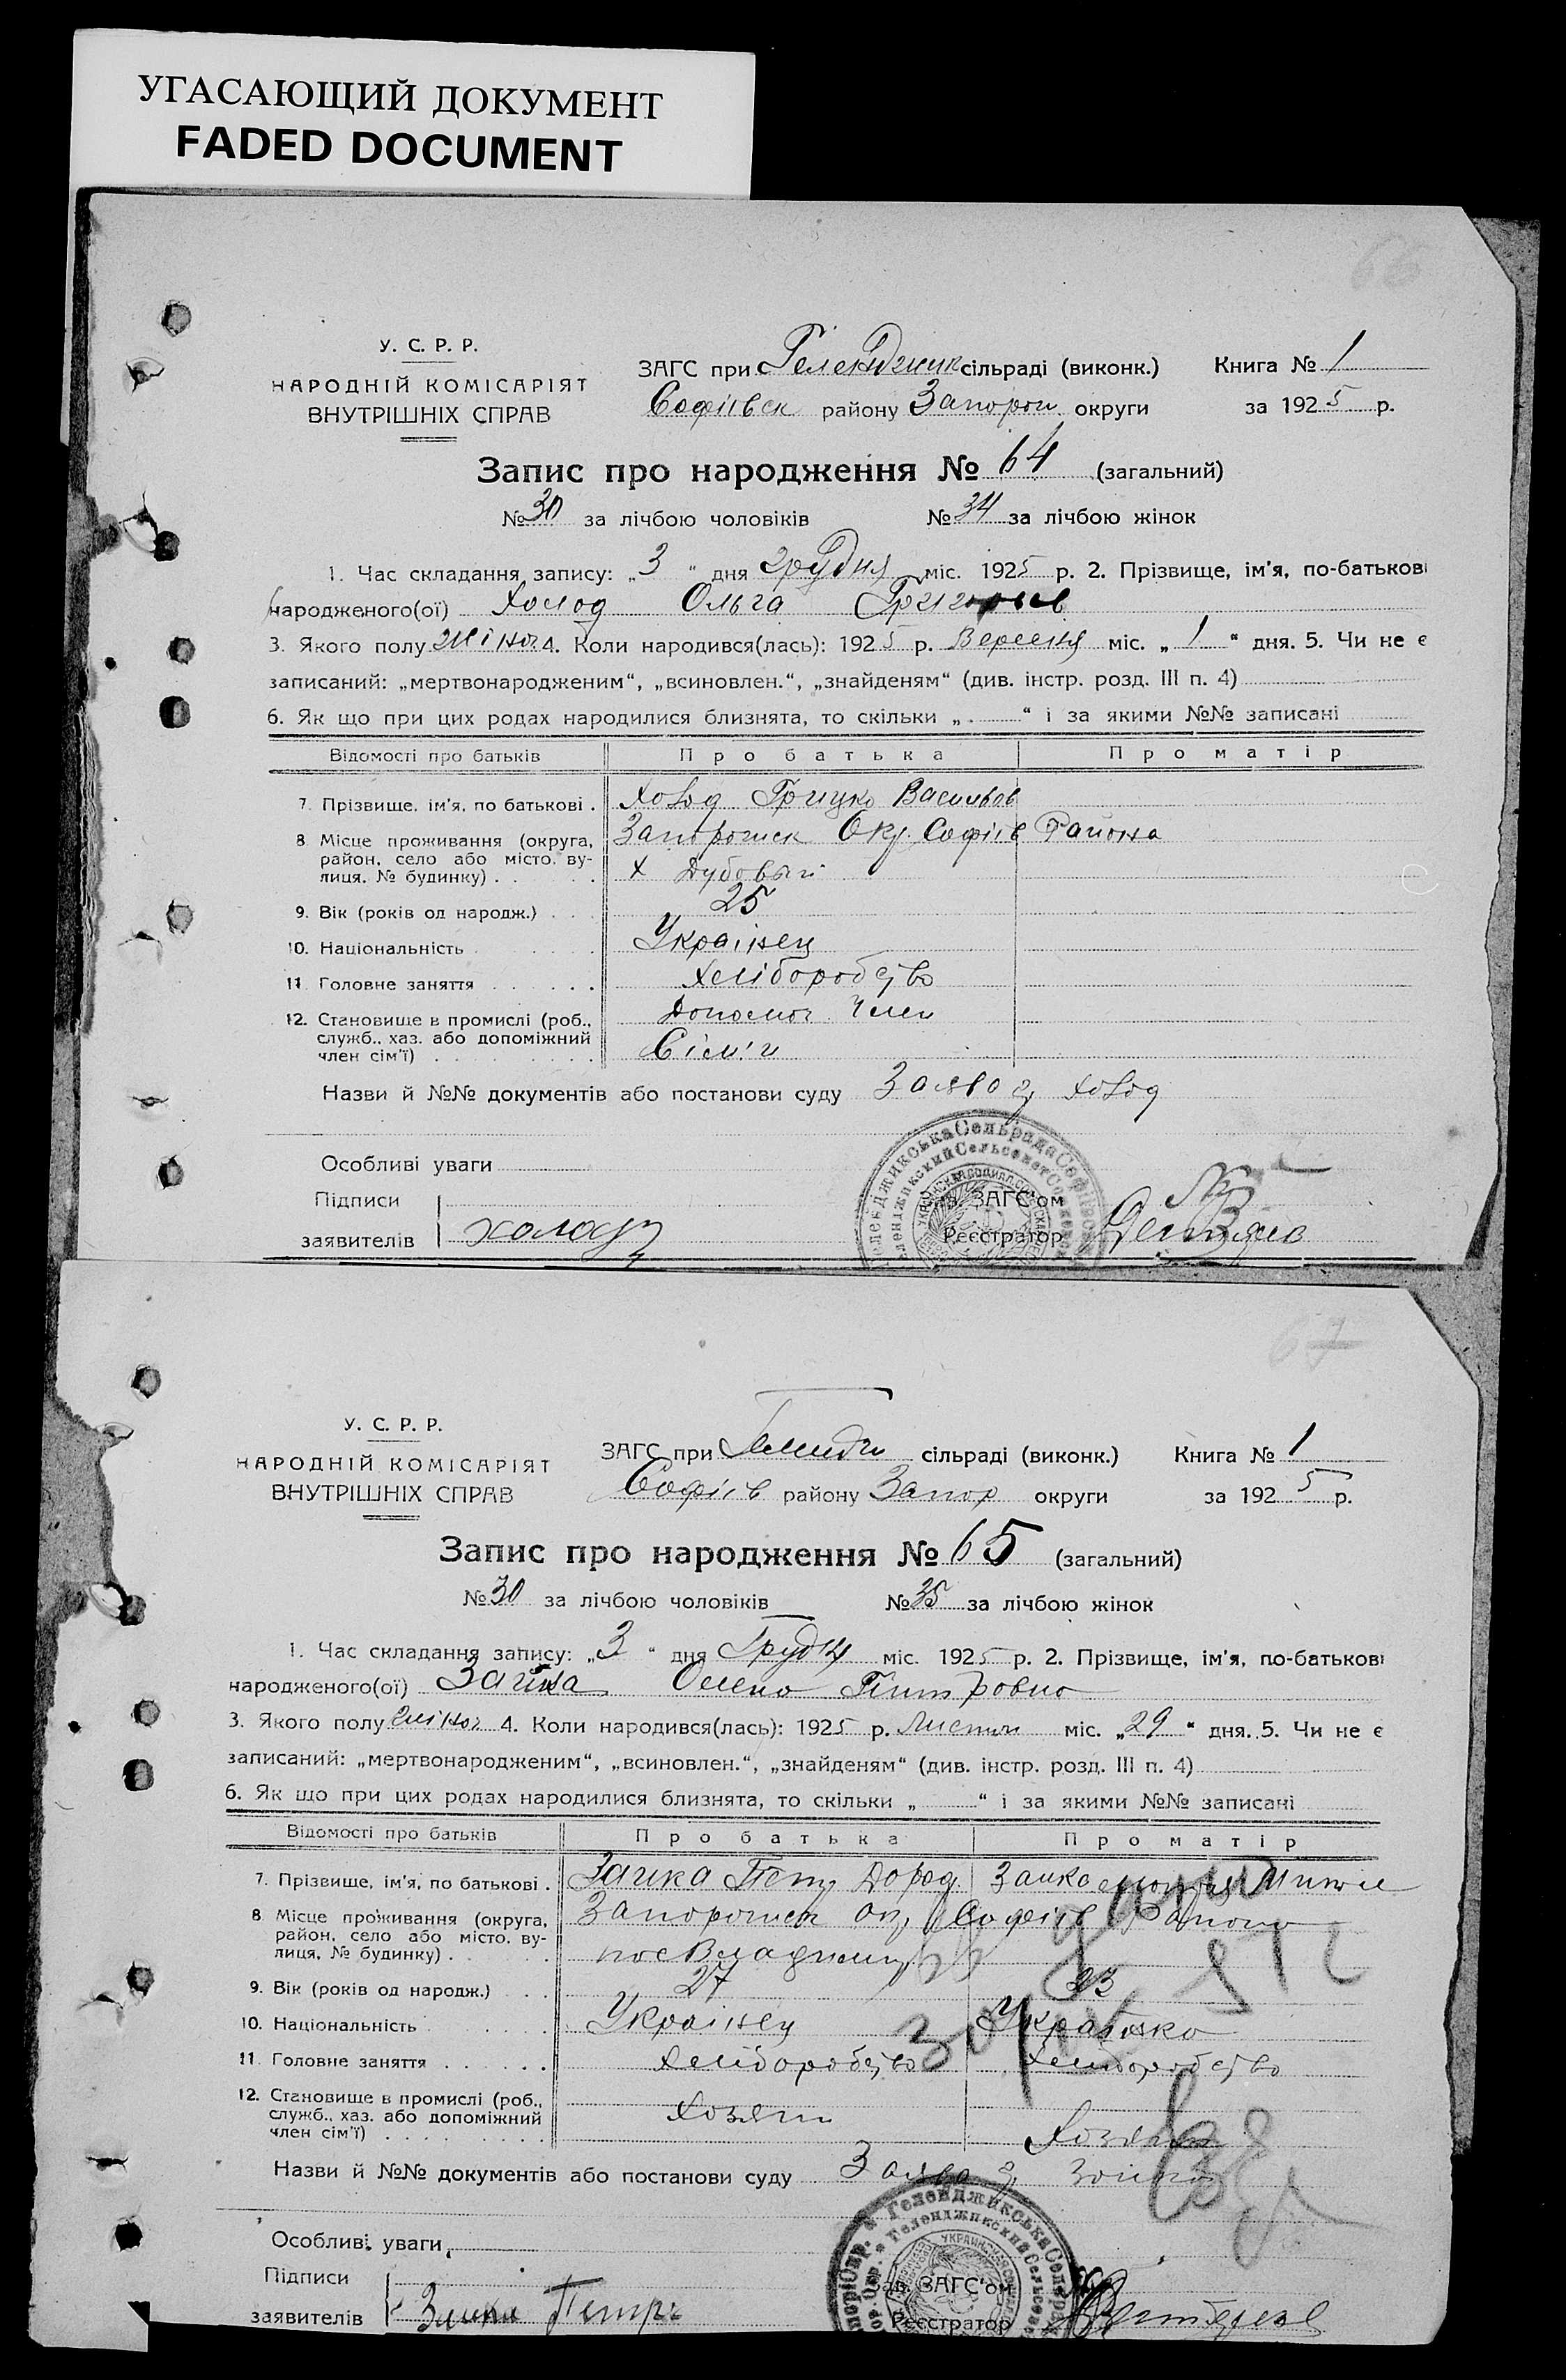 УГАСАЮЩИЙ ДОКУМЕНТ
FADED DOCUMENT
66
У. С. Р. Р.
НАРОДНІЙ КОМІСАРІЯТ
ВНУТРІШНІХ СПРАВ
ЗАГС при Геленджик сільраді (виконк.) Книга № 1
Софіївск району Запорож округи за 1925 р.
Запис про народження № 64 (загальний)
№ 30 за лічбою чоловіків № 34 за лічбою жінок
1. Час складання запису: „3“ дня Грудня міс. 1925 р. 2. Прізвище, ім'я, по-батькові
народженого(ої) Холод Ольга
3. Якого полу жіноч 4. Коли народився(лась): 1925 р. Вересня міс. „1“ дня. 5. Чи не є
записаний: „мертвонародженим“, „всиновлен.“, „знайденям“ (див. інстр. розд. III п. 4)
6. Як що при цих родах народилися близнята, то скільки „ “ і за якими №№ записані
Відомості про батьків Про батька Про матір
7. Прізвище, ім'я, по батькові . Холод Грицко Васильов
8. Місце проживання (округа, Запорожск Окр. Софіїв Района
район, село або місто, ву-
лиця, № будинку) . . . х Дубовый
9. Вік (років од народж.) . . . 25
10. Національність . . . Українец
11. Головне заняття . . . . . . Хліборобство
12. Становище в промислі (роб., Допомог. Член
служб., хаз. або допоміжний
член сім'ї) . . . . . . . . Сім'и
Назви й №№ документів або постанови суду Заява гр Холод
Особливі уваги
Підписи
заявителів холод
Зав. ЗАГС'ом
Реєстратор
67
У. С. Р. Р.
НАРОДНІЙ КОМІСАРІЯТ
ВНУТРІШНІХ СПРАВ
ЗАГС при сільраді (виконк.) Книга № 1
Софіїв району Запор округи за 1925 р.
Запис про народження № 65 (загальний)
№ 30 за лічбою чоловіків № 35 за лічбою жінок
1. Час складання запису: „3“ дня Грудня міс. 1925 р. 2. Прізвище, ім'я, по-батькові
народженого(ої) Заика Олена Петровна
3. Якого полу жіноч 4. Коли народився(лась): 1925 р. Листоп міс. „29“ дня. 5. Чи не є
записаний: „мертвонародженим“, „всиновлен.“, „знайденям“ (див. інстр. розд. III п. 4)
6. Як що при цих родах народилися близнята, то скільки „ “ і за якими №№ записані
Відомості про батьків Про батька Про матір
7. Прізвище, ім'я, по батькові . Заика Петр Дород. Заика
8. Місце проживання (округа, Запорожск окр Софіїв Района
район, село або місто, ву-
лиця, № будинку) . . . пос Владимир
9. Вік (років од народж.) . . . 27 23
10. Національність . . . Українец Українка
11. Головне заняття . . . . . . Хліборобство Хліборобство
12. Становище в промислі (роб., Хозяин
служб., хаз. або допоміжний
член сім'ї) . . . . . . . .
Назви й №№ документів або постанови суду Заява гр Заика
Особливі уваги
Підписи
заявителів Заика Петро
Зав. ЗАГС'ом
Реєстратор